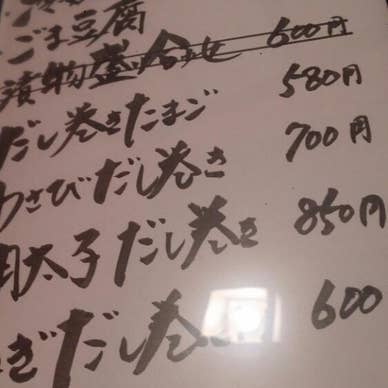 ごま豆腐
漬物盛り合わせ 600円
だし巻きたまご 580円
わさびだし巻き 700円
明太子だし巻き 850円
ねぎだし巻き 600